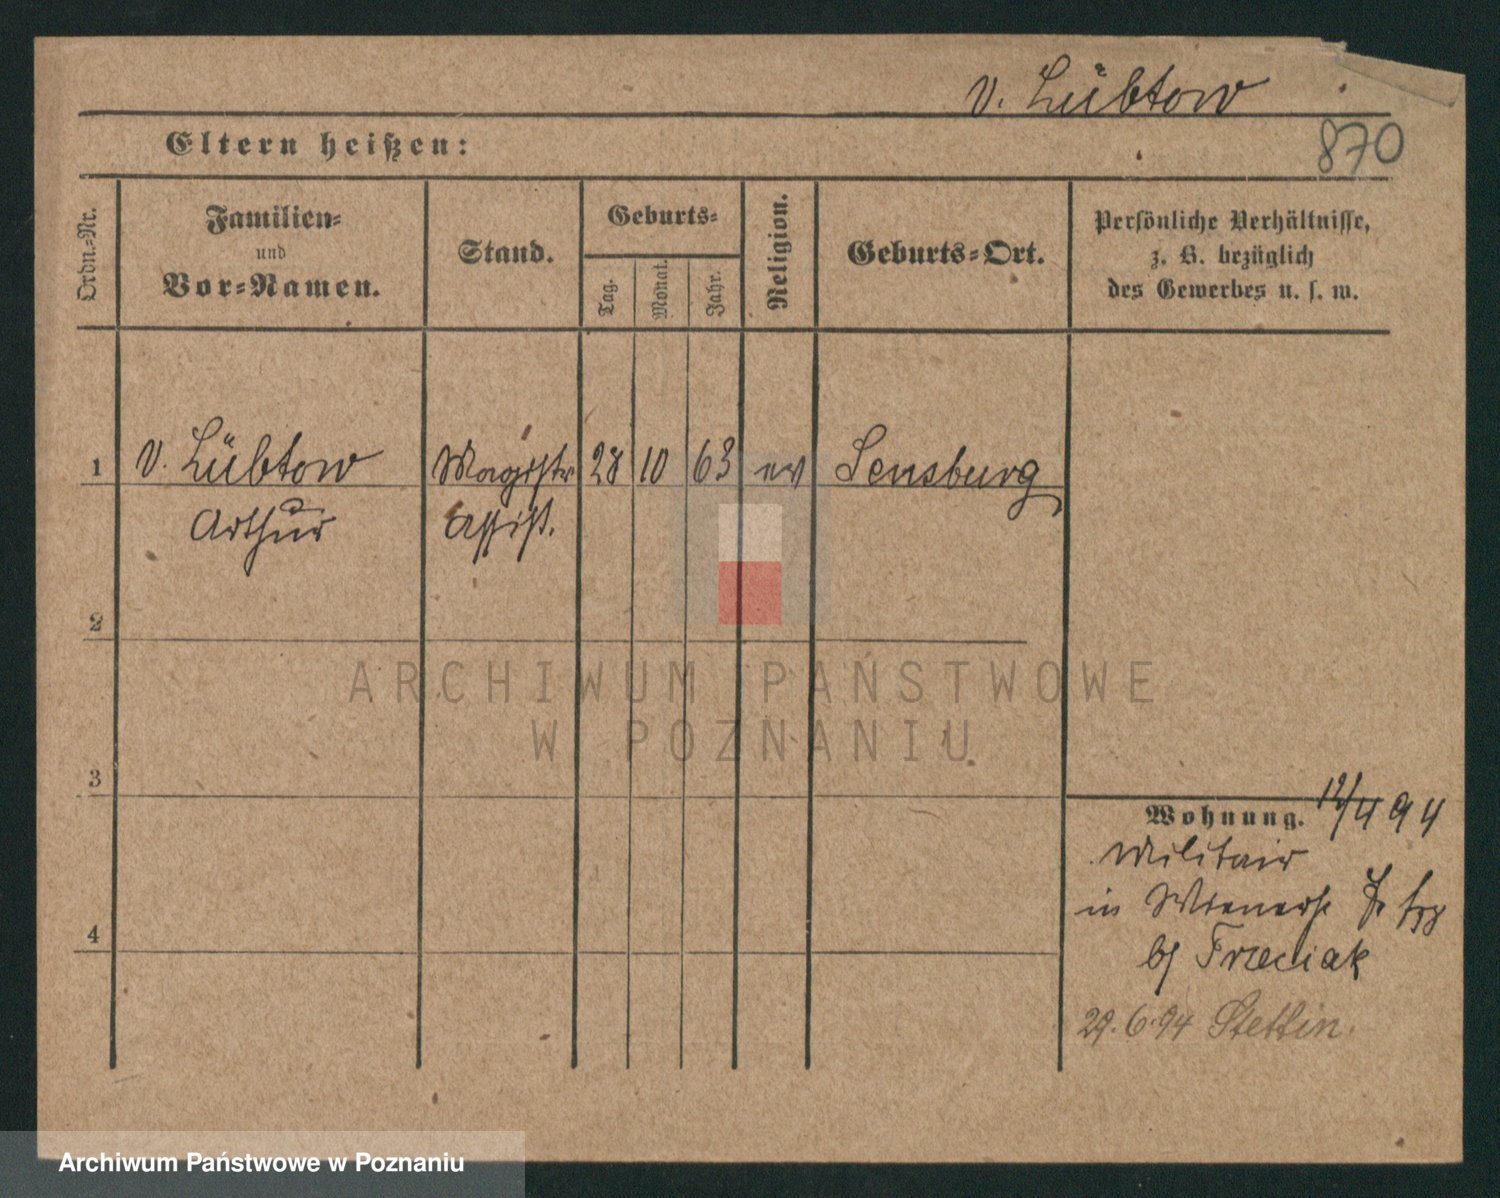 v. Lübtow
870
Eltern heißen:
Ordn.=Nr.
Familien=
und
Vor=Namen.
Stand.
Geburts=
Tag.
Monat.
Jahr.
Religion.
Geburts=Ort.
Persönliche Verhältnisse,
z. B. bezüglich
des Gewerbes u. s. w.
1 v. Lübtow Magistr 28 10 63 ev Sensburg
Arthur Assist.
2
3
4
Wohnung. 12/4 94
Militair
in
bei Frzeciak
29.6.94 Stettin.
ARCHIWUM PAŃSTWOWE
W POZNANIU
Archiwum Państwowe w Poznaniu